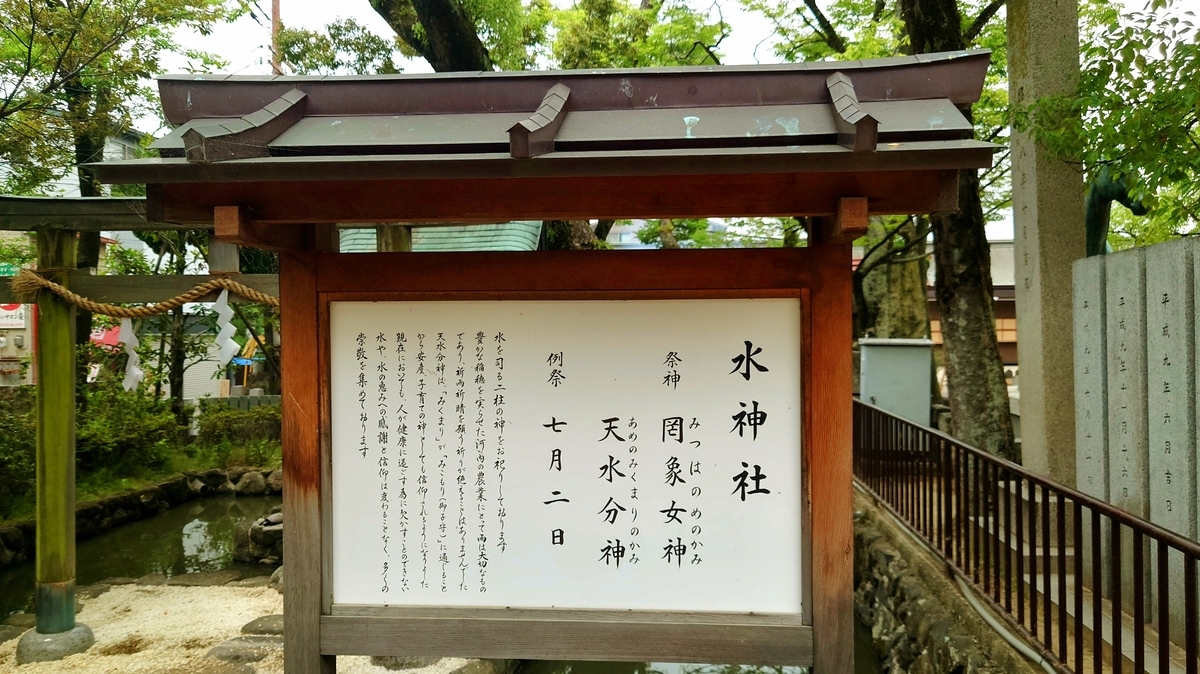 水神社
祭神
みつはのめのかみ
罔象女神
あめのみくまりのかみ
天水分神
例祭 七月二日
水を司る二柱の神をお祀りしております
豊かな稲穂を実らせた河内の農業にとって雨は大切なもの
であり、祈雨祈晴を願う祈りが絶えることはありませんでした
天水分神は、「みくまり」が「みこもり(御子守)」に通じること
から安産、子育ての神としても信仰
現在においても、人が健康に過ごす為に欠かすことのできない
水や、水の恵みへの感謝と信仰は変わることなく、多くの
崇敬を集めております
平成九年六月吉日
平成九年十一月十六日